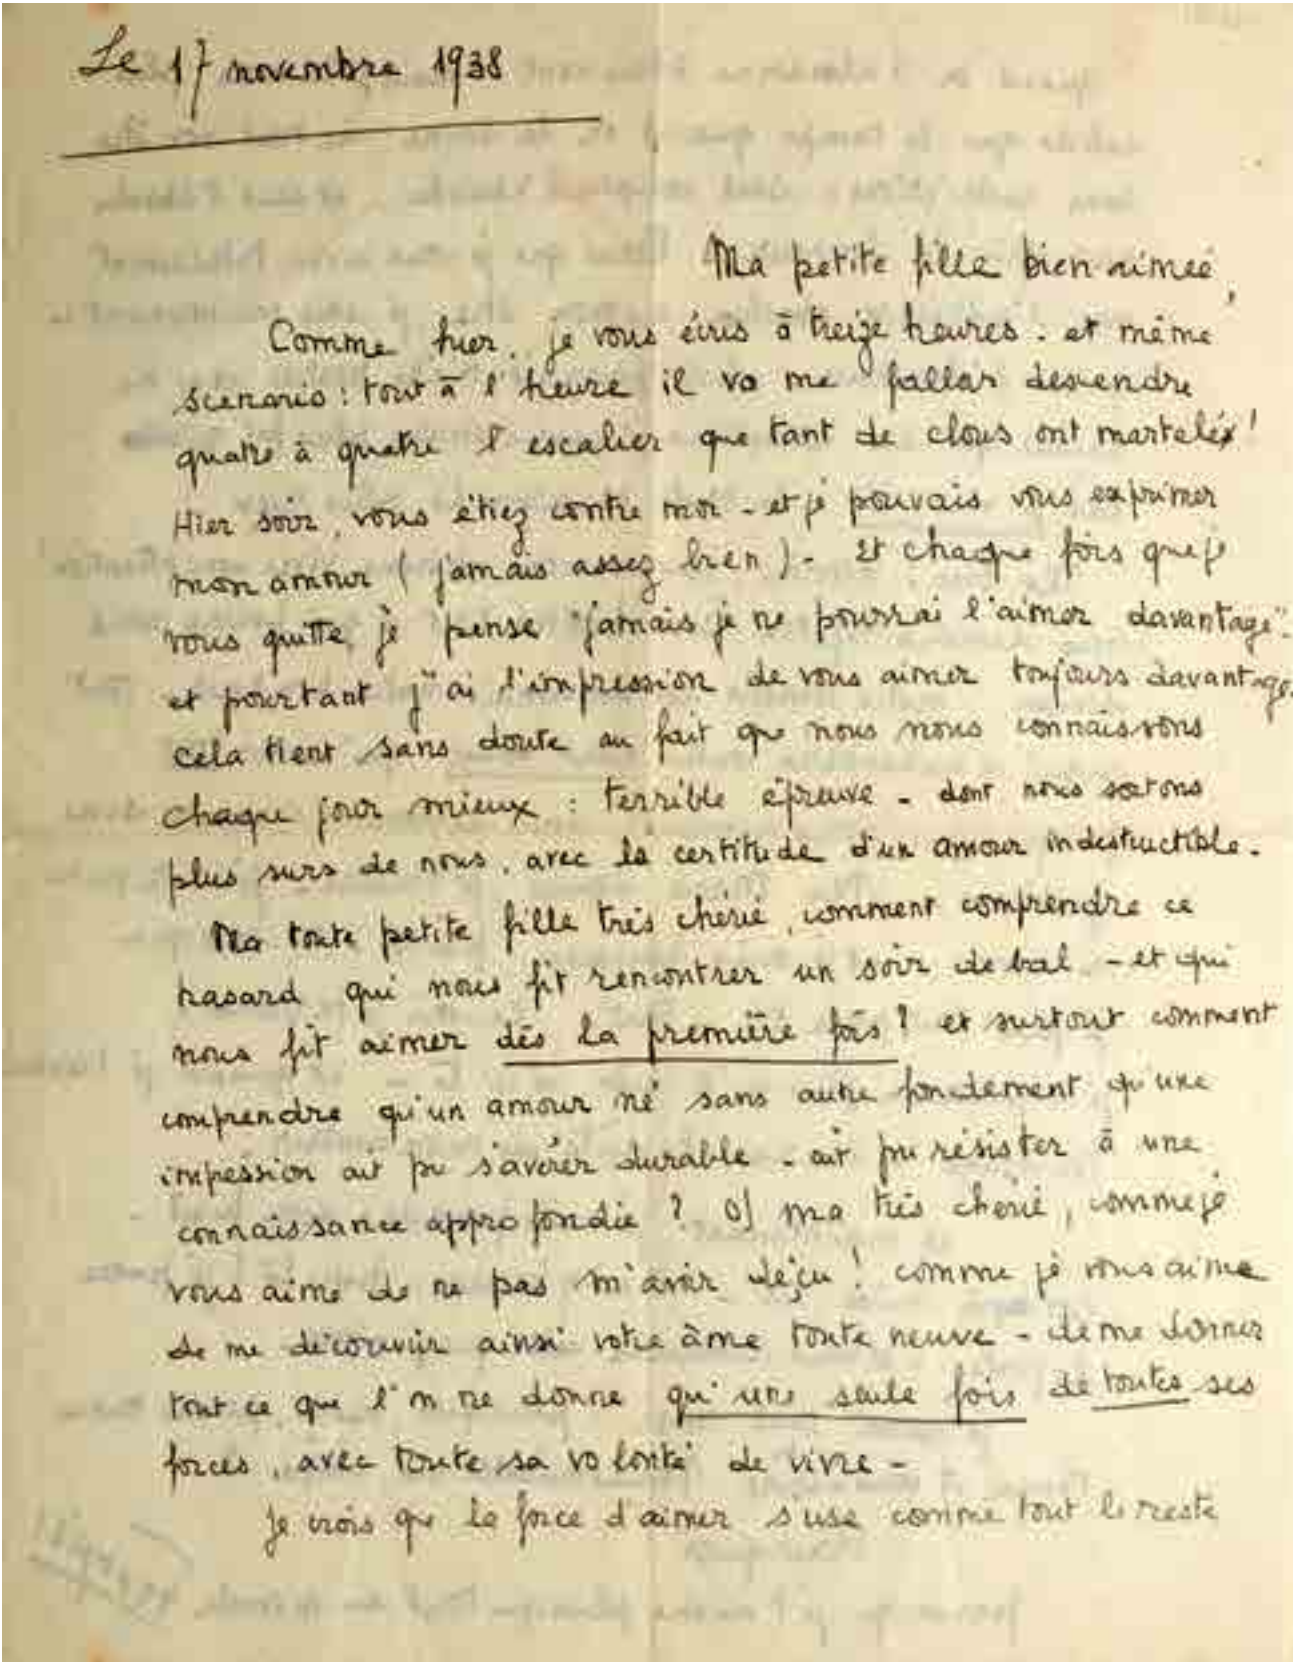 Le 17 novembre 1938
Ma petite fille bien-aimée,
Comme hier, je vous écris à treize heures. et même
scenario : tout à l'heure il va me falloir descendre
quatre à quatre l'escalier que tant de clous ont martelés !
Hier soir, vous étiez contre moi - et je pouvais vous exprimer
mon amour (jamais assez bien) - et chaque fois que je
vous quitte, je pense "jamais je ne pourrai l'aimer davantage".
et pourtant j'ai l'impression de vous aimer toujours davantage.
Cela tient sans doute au fait que nous nous connaissons
chaque jour mieux : terrible épreuve - dont nous sortons
plus surs de nous, avec la certitude d'un amour indestructible.
Ma toute petite fille très chérie, comment comprendre ce
hasard qui nous fit rencontrer un soir de bal - et qui
nous fit aimer dès la première fois ? et surtout comment
comprendre qu'un amour né sans autre fondement qu'une
impession ait pu s'avérer durable - ait pu résister à une
connaissance approfondie ? O ma très chérie, comme je
vous aime de ne pas m'avoir déçu ! comme je vous aime
de me découvrir ainsi votre âme toute neuve - de me donner
tout ce que l'on ne donne qu'une seule fois de toutes ses
forces, avec toute sa volonté de vivre -
Je crois que la force d'aimer s'use comme tout le reste